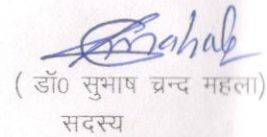 ( डॉ0 सुभाष चन्द महला)
सदस्य